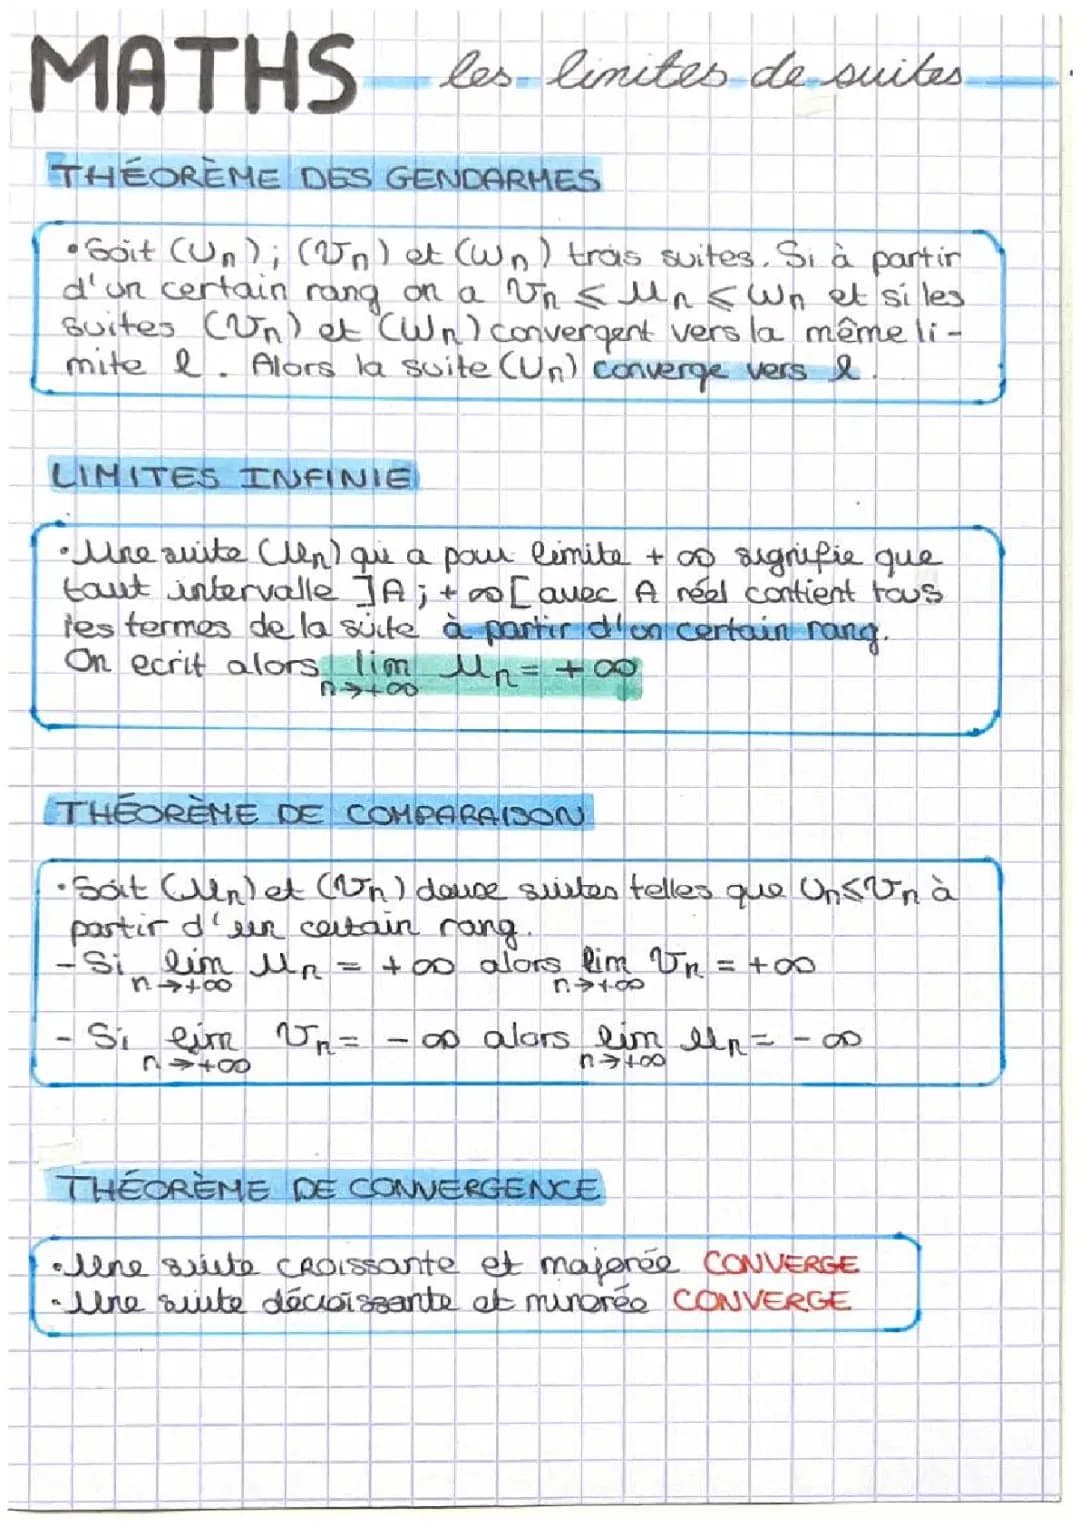 MATHS les limites de suites
THÉORÈME DES GENDARMES
• Soit (Un); (Vn) et (Wn) trois suites. Si à partir
d'un certain rang on a Vn ≤ Un ≤ Wn et si les
suites (Vn) et (Wn) convergent vers la même li-
mite l. Alors la suite (Un) converge vers l.
LIMITES INFINIE
• Une suite (Un) qui a pour limite + ∞ signifie que
tout intervalle ]A; + ∞ [ avec A réel contient tous
les termes de la suite à partir d'un certain rang.
On ecrit alors lim Un = + ∞
n→+∞
THÉORÈME DE COMPARAISON
• Soit (Un) et (Vn) deux suites telles que Un ≤ Vn à
partir d'un certain rang.
- Si lim Un = + ∞ alors lim Vn = +∞
n→+∞ n→+∞
- Si lim Vn = - ∞ alors lim Un = - ∞
n→+∞ n→+∞
THÉORÈME DE CONVERGENCE
• Une suite croissante et majorée CONVERGE
• Une suite décroissante et minorée CONVERGE